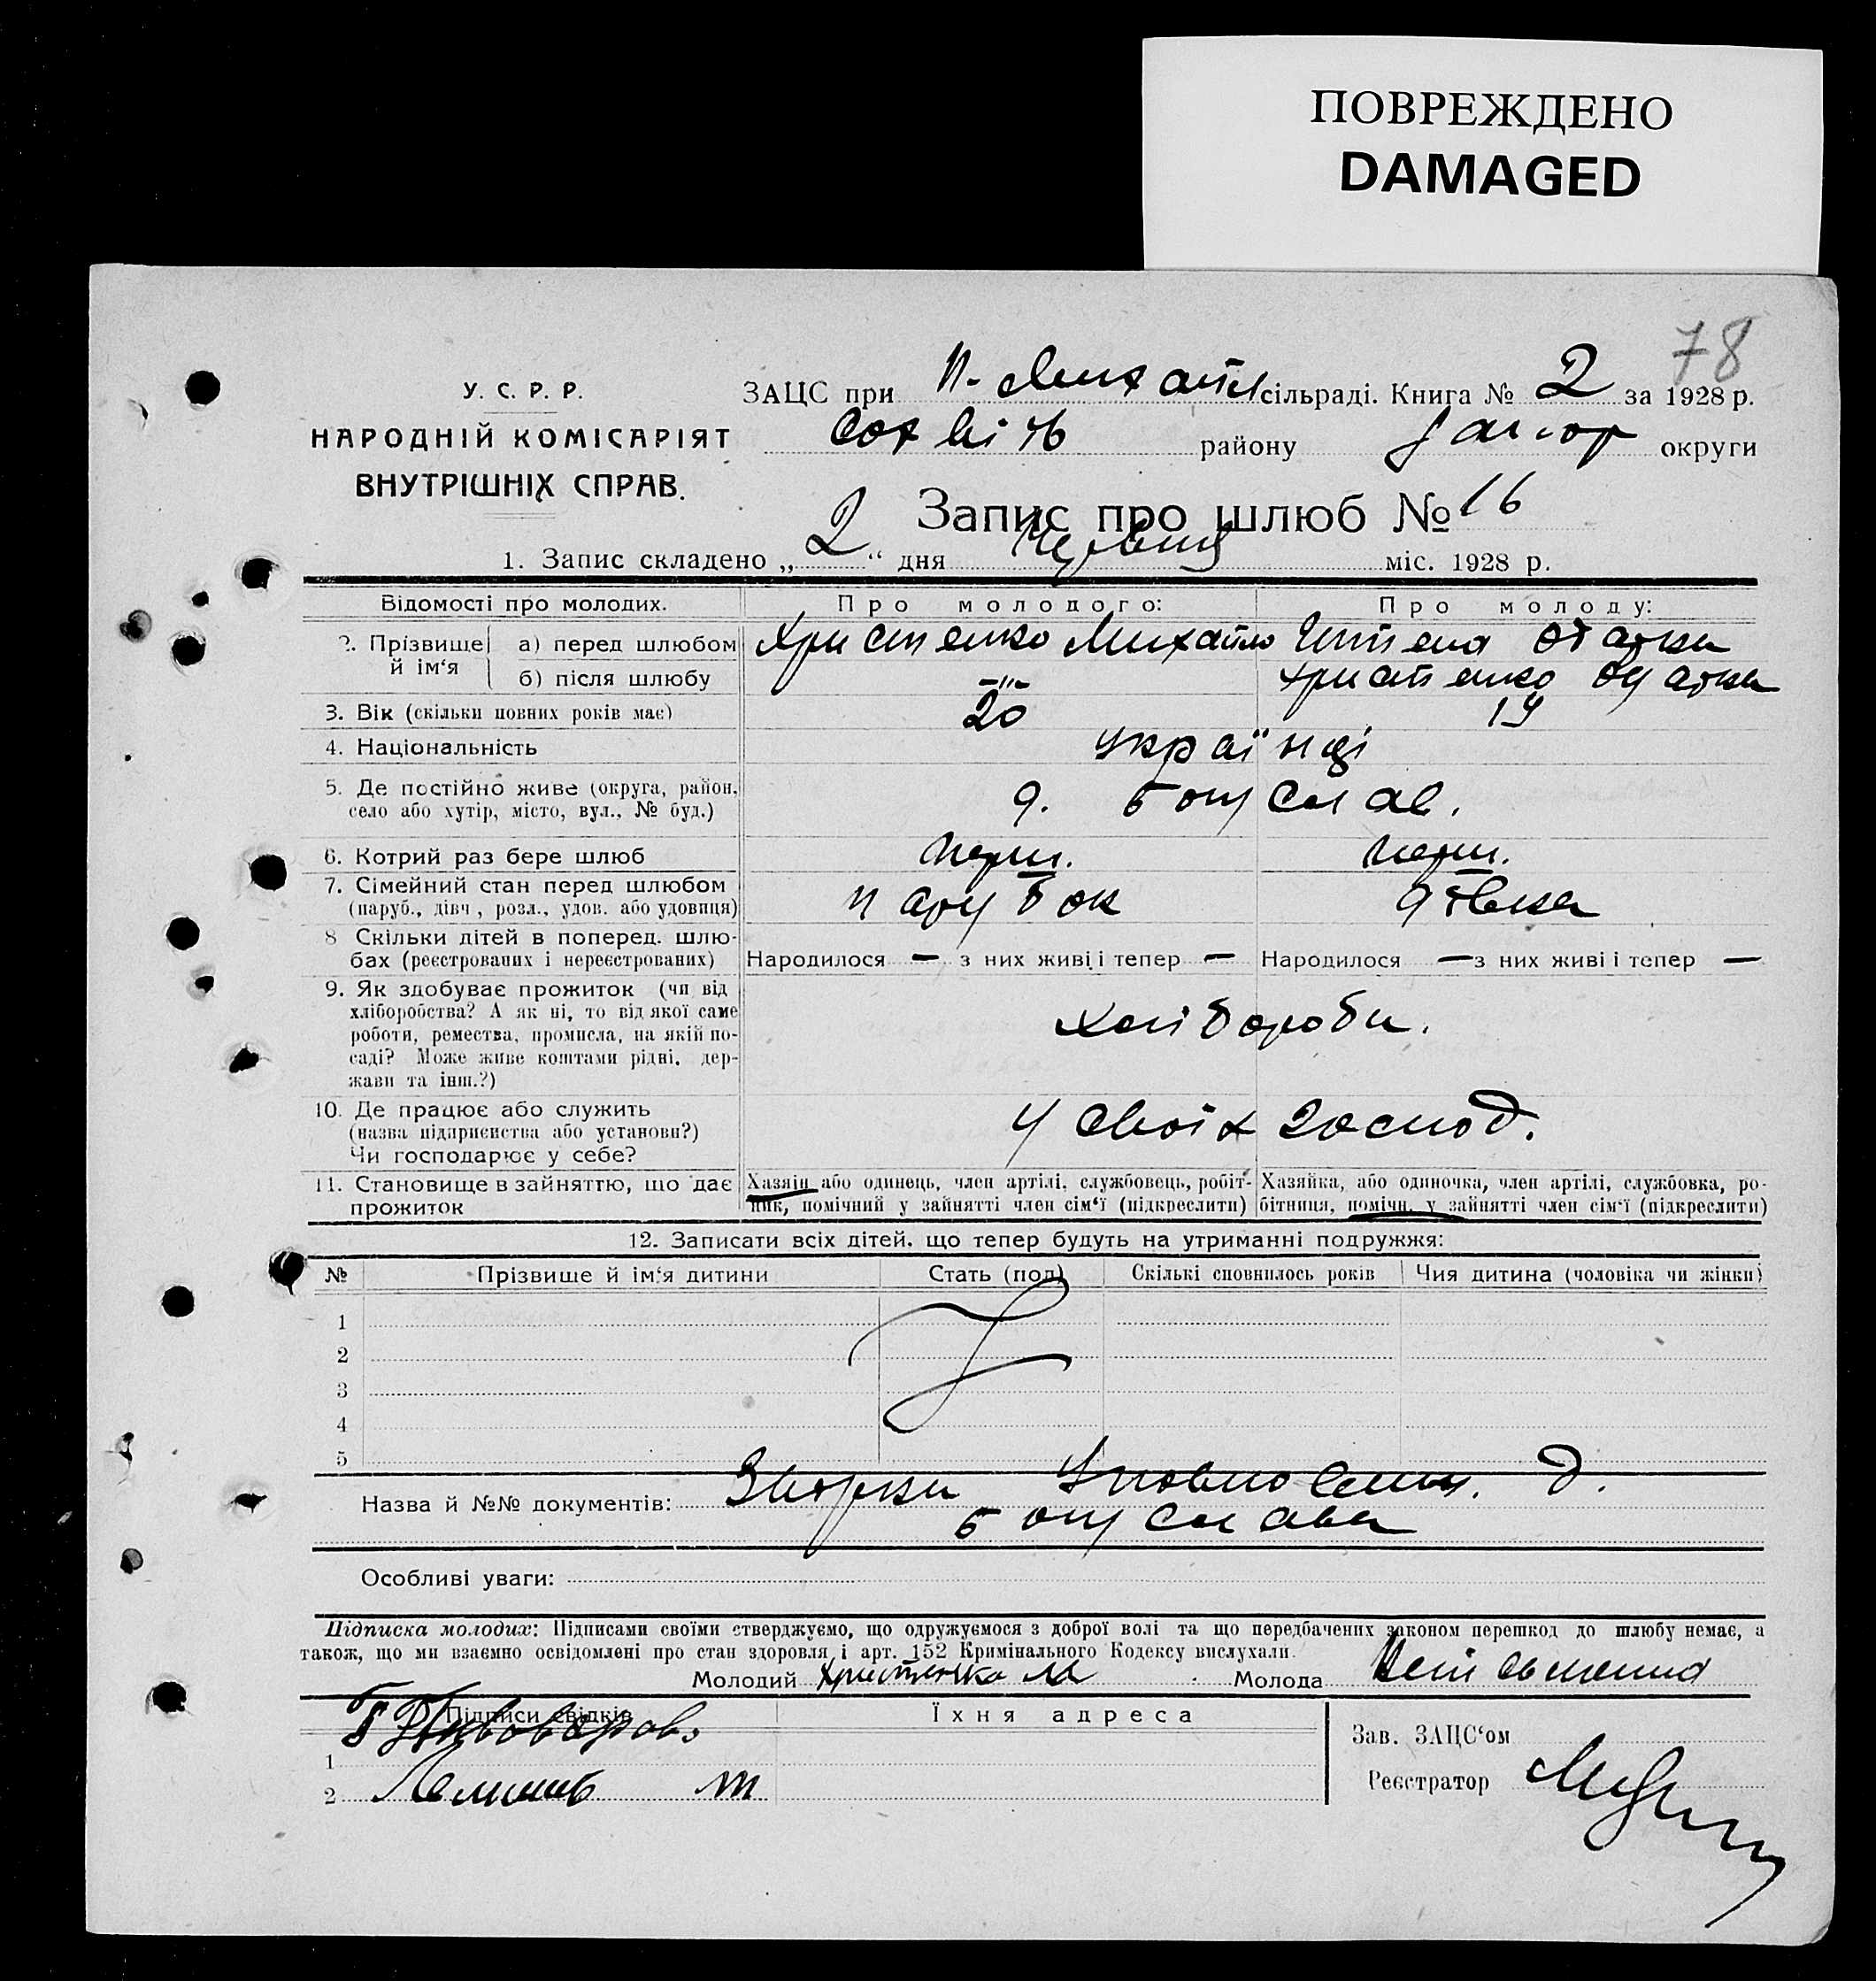 ПОВРЕЖДЕНО
DAMAGED
78
У. С. Р. Р.
НАРОДНІЙ КОМІСАРІЯТ
ВНУТРІШНІХ СПРАВ.
ЗАЦС при сільраді. Книга № 2 за 1928 р.
району округи
Запис про шлюб № 16
1. Запис складено „ 2 “ дня Червня міс. 1928 р.
Відомості про молодих. Про молодого: Про молоду:
2. Прізвище й ім‘я
а) перед шлюбом Христенко Михайло
б) після шлюбу -"- Христенко
3. Вік (скільки повних років має) 20 19
4. Національність українці
5. Де постійно живе (округа, район, село або хутір, місто, вул., № буд.) Богуслав.
6. Котрий раз бере шлюб перш. перш.
7. Сімейний стан перед шлюбом
(паруб., дівч., розл., удов. або удовиця) парубок дівка
8 Скільки дітей в поперед. шлю-
бах (реєстрованих і нереєстрованих) Народилося — з них живі і тепер — Народилося — з них живі і тепер —
9. Як здобуває прожиток (чи від
хліборобства? А як ні, то від якої саме
роботи, ремества, промисла, на якій по-
саді? Може живе коштами рідні, дер-
жави та інш.?)
хлібороби.
10. Де працює або служить
(назва підприєнства або установи?)
Чи господарює у себе?
у своїх господ.
11. Становище в зайняттю, що дає
прожиток
Хазяїн або одинець, член артілі, службовець, робіт-
ник, помічний у зайнятті член сім‘ї (підкреслити)
Хазяйка, або одиночка, член артілі, службовка, ро-
бітниця, помічн. у зайнятті член сім‘ї (підкреслити)
12. Записати всіх дітей. що тепер будуть на утриманні подружжя:
№ Прізвище й ім‘я дитини Стать (пол) Скількі сповнилось років Чия дитина (чоловіка чи жінки)
1
2
3
4
5
Назва й №№ документів: д.
Богуслава
Особливі уваги:
Підписка молодих: Підписами своїми стверджуємо, що одружуємося з доброї волі та що передбачених законом перешкод до шлюбу немає, а
також, що ми взаємно освідомлені про стан здоровля і арт. 152 Кримінального Кодексу вислухали.
Молодий Христенко М Молода
Підписи свідків Їхня адреса
1
2
Зав. ЗАЦС‘ом
Реєстратор